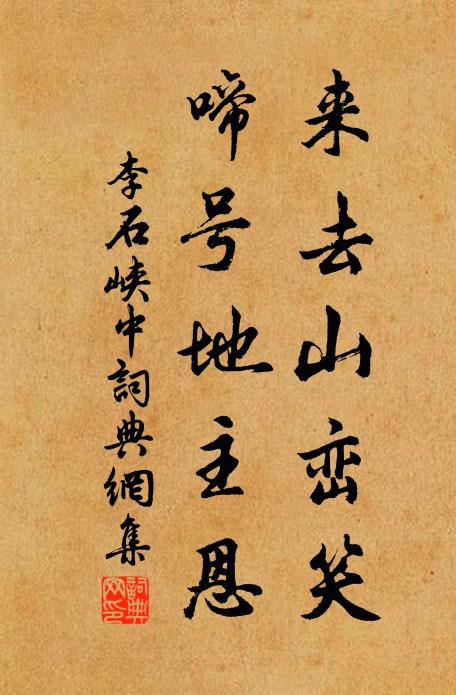 来去山峦笑
啼号地主恩
李石峡中詞典網集
詞典网印